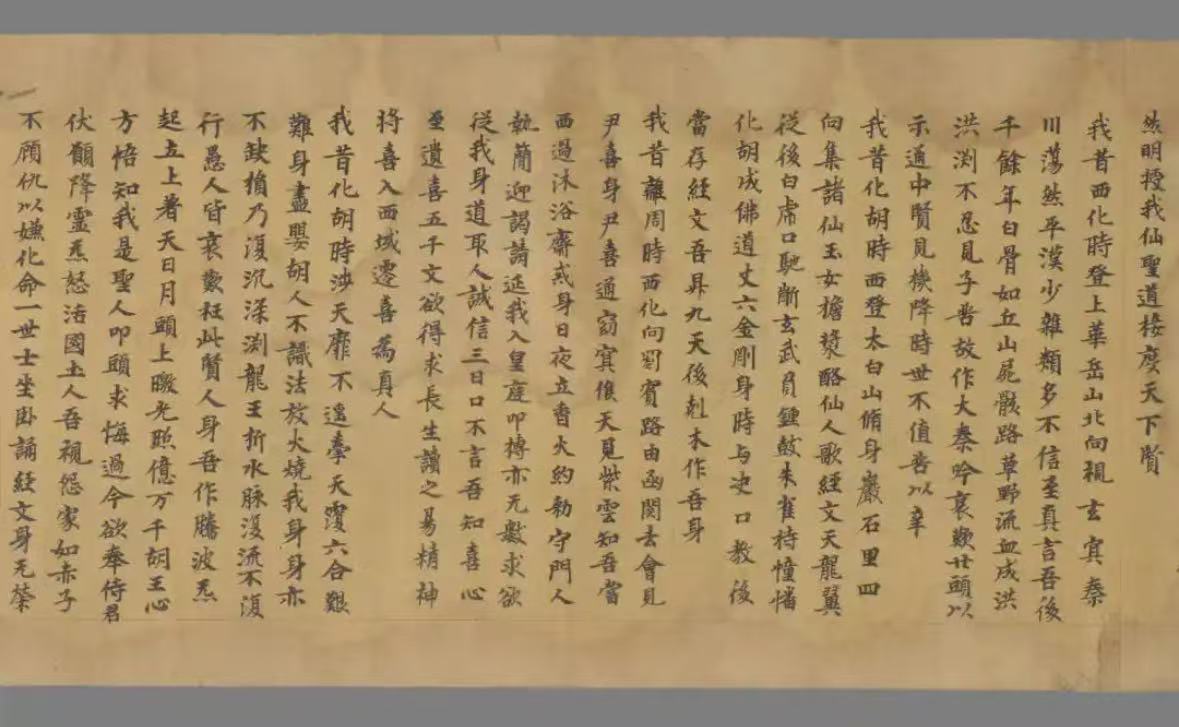 然明授我仙聖道接度天下賢
我昔西化時登上華岳山北向視玄冥秦
川蕩然平漢少雜類多不信至真言吾後
千餘年白骨如丘山屍骸路草野流血成洪
洪渕不忍見子苦故作大秦吟哀歎廿頭以
示通中賢見機降時世不值苦以辛
我昔化胡時西登太白山脩身巖石里四
向集諸仙玉女擔漿酪仙人歌經文天龍翼
從後白虎口馳斷玄武負鍾皷朱雀持幢幡
化胡成佛道丈六金剛身時与決口教後
當存經文吾昇九天後剋木作吾身
我昔離周時西化向罽賓路由函關去會見
尹喜身尹喜通窈冥候天見紫雲知吾當
西過沐浴齋戒身日夜立香火約勑守門人
執簡迎謁請延我入皇庭叩搏亦无數求欲
從我身道取人誠信三日口不言吾知喜心
至遺喜五千文欲得求長生讀之易精神
將喜入西域遷喜為真人
我昔化胡時涉天靡不遥牽天覆六合艱
難身盡嬰胡人不識法放火燒我身身亦
不缺損乃復沉深渕龍王折水脉復流不復
行愚人皆哀歎枉此賢人身吾作騰波炁
起立上著天日月頭上曒光照億万千胡王心
方悟知我是聖人叩頭求悔過今欲奉侍君
伏願降靈炁恕活國土人吾視怨家如赤子
不顧仇以嫌化命一世士坐卧誦經文身无榮